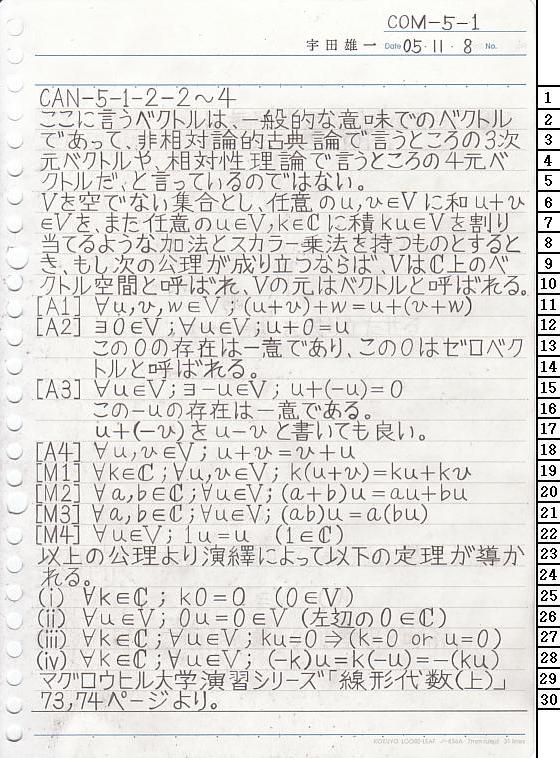 COM-5-1
宇田雄一 Date 05・11・8 No.
CAN-5-1-2-2～4
ここに言うベクトルは、一般的な意味でのベクトル
であって、非相対論的古典論で言うところの3次
元ベクトルや、相対性理論で言うところの4元ベ
クトルだ、と言っているのではない。
Vを空でない集合とし、任意のu,v∈Vに和u+v
∈Vを、また任意のu∈V,k∈ℂに積ku∈Vを割り
当てるような加法とスカラー乗法を持つものとすると
き、もし次の公理が成り立つならば、Vはℂ上のベ
クトル空間と呼ばれ、Vの元はベクトルと呼ばれる。
[A1] ∀u,v,w∈V;(u+v)+w=u+(v+w)
[A2] ∃0∈V;∀u∈V;u+0=u
この0の存在は一意であり、この0はゼロベク
トルと呼ばれる。
[A3] ∀u∈V;∃-u∈V; u+(-u)=0
この-uの存在は一意である。
u+(-v)をu-vと書いても良い。
[A4] ∀u,v∈V; u+v=v+u
[M1] ∀k∈ℂ;∀u,v∈V; k(u+v)=ku+kv
[M2] ∀a,b∈ℂ;∀u∈V;(a+b)u=au+bu
[M3] ∀a,b∈ℂ;∀u∈V;(ab)u=a(bu)
[M4] ∀u∈V; 1u=u (1∈ℂ)
以上の公理より演繹によって以下の定理が導か
れる。
(i) ∀k∈ℂ; k0=0 (0∈V)
(ii) ∀u∈V; 0u=0∈V (左辺の0∈ℂ)
(iii) ∀k∈ℂ;∀u∈V; ku=0⇒(k=0 or u=0)
(iv) ∀k∈ℂ;∀u∈V; (-k)u=k(-u)=-(ku)
マグロウヒル大学演習シリーズ「線形代数(上)」
73,74ページより。
1
2
3
4
5
6
7
8
9
10
11
12
13
14
15
16
17
18
19
20
21
22
23
24
25
26
27
28
29
30
KOKUYO LOOSE-LEAF ノ-836A 7mm ruled 31 lines